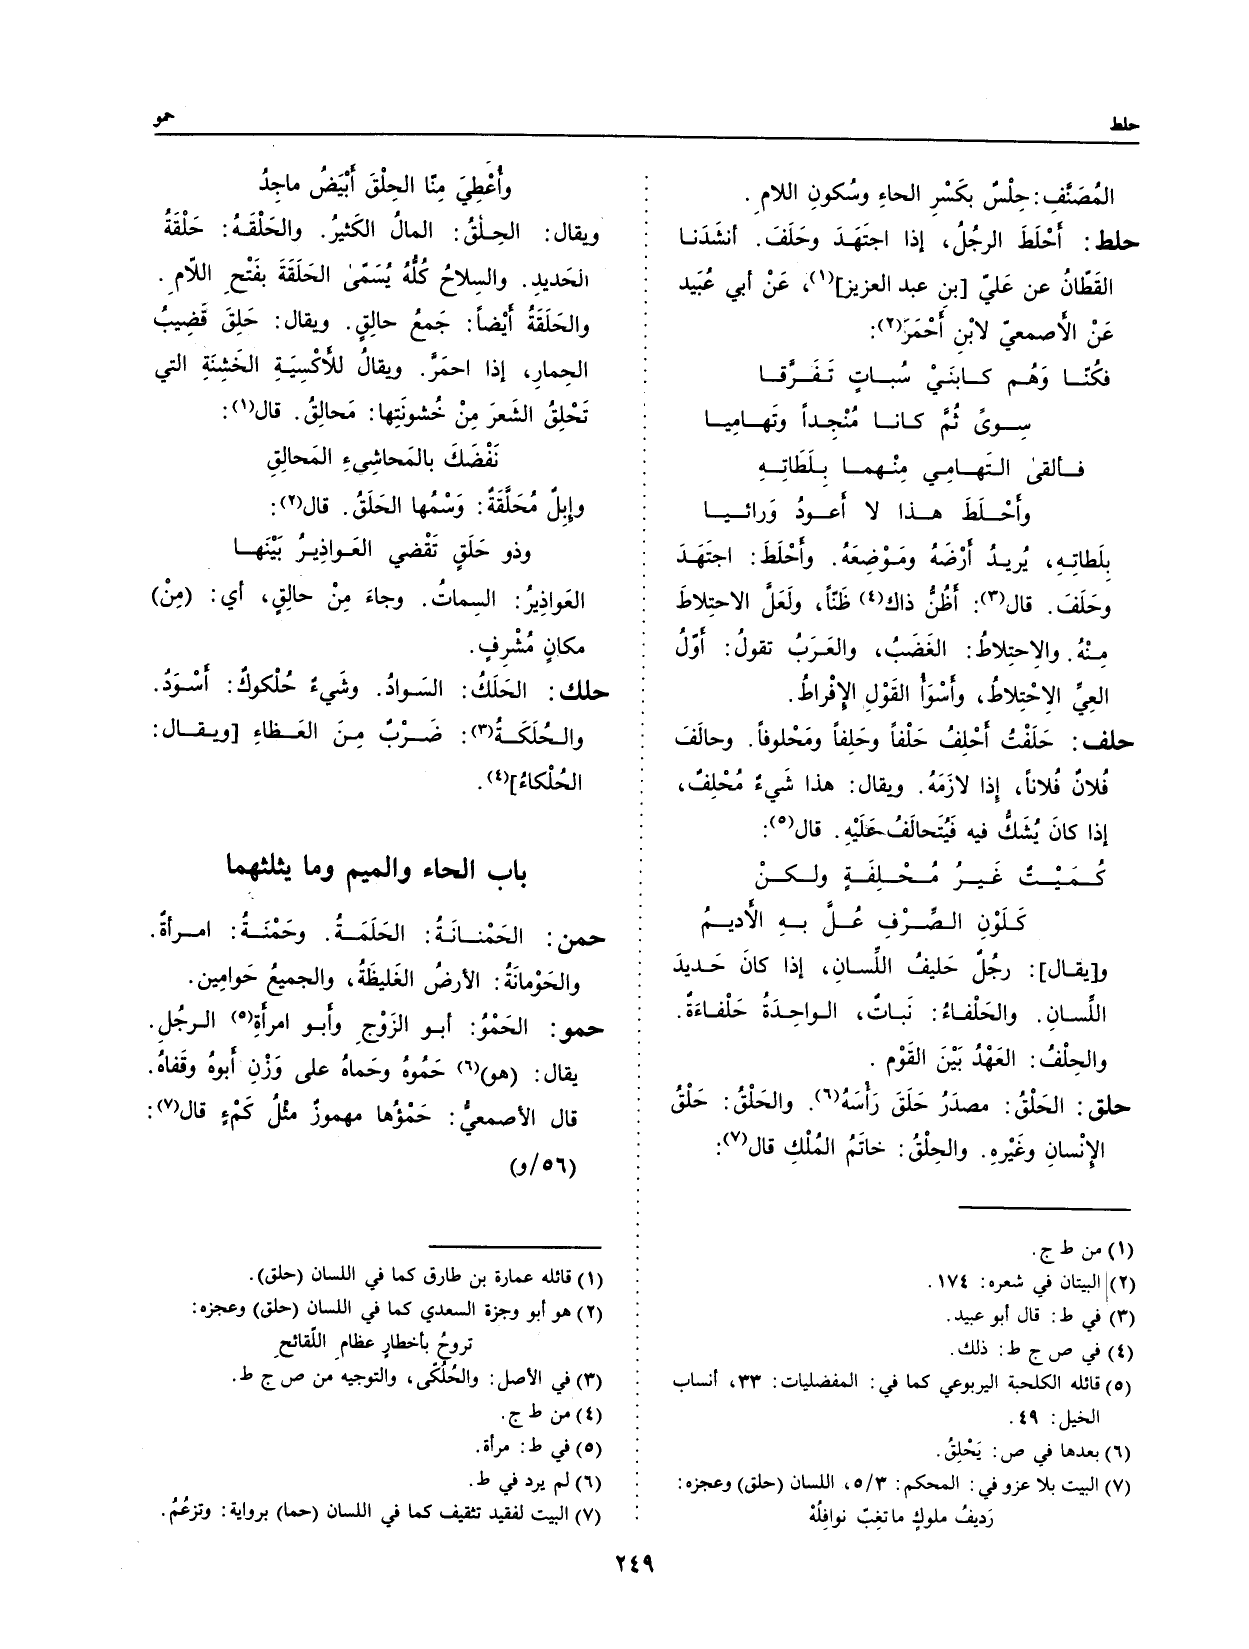 حلط
حمو
المُصَنَّفِ: حِلْسٌ بكَسْرِ الحاءِ وسُكونِ اللامِ.
حلط: أَحْلَطَ الرجُلُ، إذا اجتَهَدَ وحَلَفَ. أنشَدَنا
القَطّانُ عن عَليّ [بن عبد العزيز](١)، عَنْ أبي عُبَيد
عَنْ الأَصمعيّ لابْنِ أَحْمَرَ(٢):
فكُنّا وَهُم كابنَيْ سُباتٍ تَفَرَّقا
سِوىً ثُمَّ كانا مُنْجِداً وتَهامِيا
فألقىٰ التَهامِي مِنْهما بِلَطَاتِهِ
وأَحْلَطَ هذا لا أَعودُ وَرائيا
بِلَطاتِهِ، يُريدُ أَرْضَهُ ومَوْضِعَهُ. وأَحْلَطَ: اجتَهَدَ
وحَلَفَ. قال(٣): أَظُنُّ ذاك(٤) ظَنّاً، ولَعَلَّ الاحتِلاطَ
مِنْهُ. والاِحتِلاطُ: الغَضَبُ، والعَرَبُ تقولُ: أَوّلُ
العِيِّ الاِحْتِلاطُ، وأَسْوَأُ القَوْلِ الإِفْراطُ.
حلف: حَلَفْتُ أَحْلِفُ حَلْفاً وحَلِفاً ومَحْلوفاً. وحالَفَ
فُلانٌ فُلاناً، إِذا لازَمَهُ. ويقال: هذا شَيءٌ مُحْلِفٌ،
إذا كانَ يُشَكُّ فيه فَيُتَحالَفُ عَلَيْهِ. قال(٥):
كُمَيْتٌ غَيرُ مُحْلِفَةٍ ولكنْ
كَلَوْنِ الصِّرْفِ عُلَّ بِهِ الأَديمُ
و[يقال]: رجُلٌ حَليفُ اللِّسانِ، إذا كانَ حَديدَ
اللِّسانِ. والحَلْفاءُ: نَباتٌ، الواحِدَةُ حَلْفاءَةٌ.
والحِلْفُ: العَهْدُ بَيْنَ القَوْمِ.
حلق: الحَلْقُ: مصدَرُ حَلَقَ رَأْسَهُ(٦). والحَلْقُ: حَلْقُ
الإِنْسانِ وغَيْرِهِ. والحِلْقُ: خاتَمُ المُلْكِ قال(٧):
(١) من ط ج.
(٢) البيتان في شعره: ١٧٤.
(٣) في ط: قال أبو عبيد.
(٤) في ص ج ط: ذلك.
(٥) قائله الكلحبة اليربوعي كما في: المفضليات: ٣٣، أنساب
الخيل: ٤٩.
(٦) بعدها في ص: يَحْلِقُ.
(٧) البيت بلا عزو في: المحكم: ٥/٣، اللسان (حلق) وعجزه:
رَديفُ ملوكٍ ما تغِبّ نوافِلُهْ
وأُعْطِيَ مِنّا الحِلْقَ أَبْيَضُ ماجِدُ
ويقال: الحِلْقُ: المالُ الكَثيرُ. والحَلْقَةُ: حَلْقَةُ
الحَديدِ. والسِلاحُ كُلُّهُ يُسَمّىٰ الحَلَقَةَ بفَتْحِ اللّامِ.
والحَلَقَةُ أَيْضاً: جَمعُ حالِقٍ. ويقال: حَلِقَ قَضيبُ
الحِمارِ، إذا احمَرَّ. ويقالُ للأَكْسِيَةِ الخَشِنَةِ التي
تَحْلِقُ الشَعرَ مِنْ خُشونَتِها: مَحالِقُ. قال(١):
نَفْضَكَ بالمَحاشيءِ المَحالِقِ
وإبِلٌ مُحَلَّقَةٌ: وَسْمُها الحَلَقُ. قال(٢):
وذو حَلَقٍ تَقْضي العَواذِيرُ بَيْنَها
العَواذِيرُ: السِماتُ. وجاءَ مِنْ حالِقٍ، أي: (مِنْ)
مكانٍ مُشْرِفٍ.
حلك: الحَلَكُ: السَوادُ. وشَيءٌ حُلْكوكٌ: أَسْوَدُ.
والحُلَكَةُ(٣): ضَرْبٌ مِنَ العَظاءِ [ويقال:
الحُلْكاءُ](٤).
باب الحاء والميم وما يثلثهما
حمن: الحَمْنانَةُ: الحَلَمَةُ. وحَمْنَةُ: امرأةٌ.
والحَوْمانَةُ: الأرضُ الغَليظَةُ، والجميعُ حَوامِين.
حمو: الحَمْوُ: أبو الزَوْجِ وأَبو امرأةِ(٥) الرجُلِ.
يقال: (هو)(٦) حَمُوهُ وحَماهُ على وَزْنِ أَبوهُ وقَفاهُ.
قال الأصمعيُّ: حَمْؤُها مهموزٌ مثْلُ كَمْءٍ قال(٧):
(٥٦/و)
(١) قائله عمارة بن طارق كما في اللسان (حلق).
(٢) هو أبو وجزة السعدي كما في اللسان (حلق) وعجزه:
تروحُ بأخطارٍ عظامِ اللّقائحِ
(٣) في الأصل: والحُلْكَى، والتوجيه من ص ج ط.
(٤) من ط ج.
(٥) في ط: مرأة.
(٦) لم يرد في ط.
(٧) البيت لفقيد ثقيف كما في اللسان (حما) برواية: وتزعُمُ.
٢٤٩